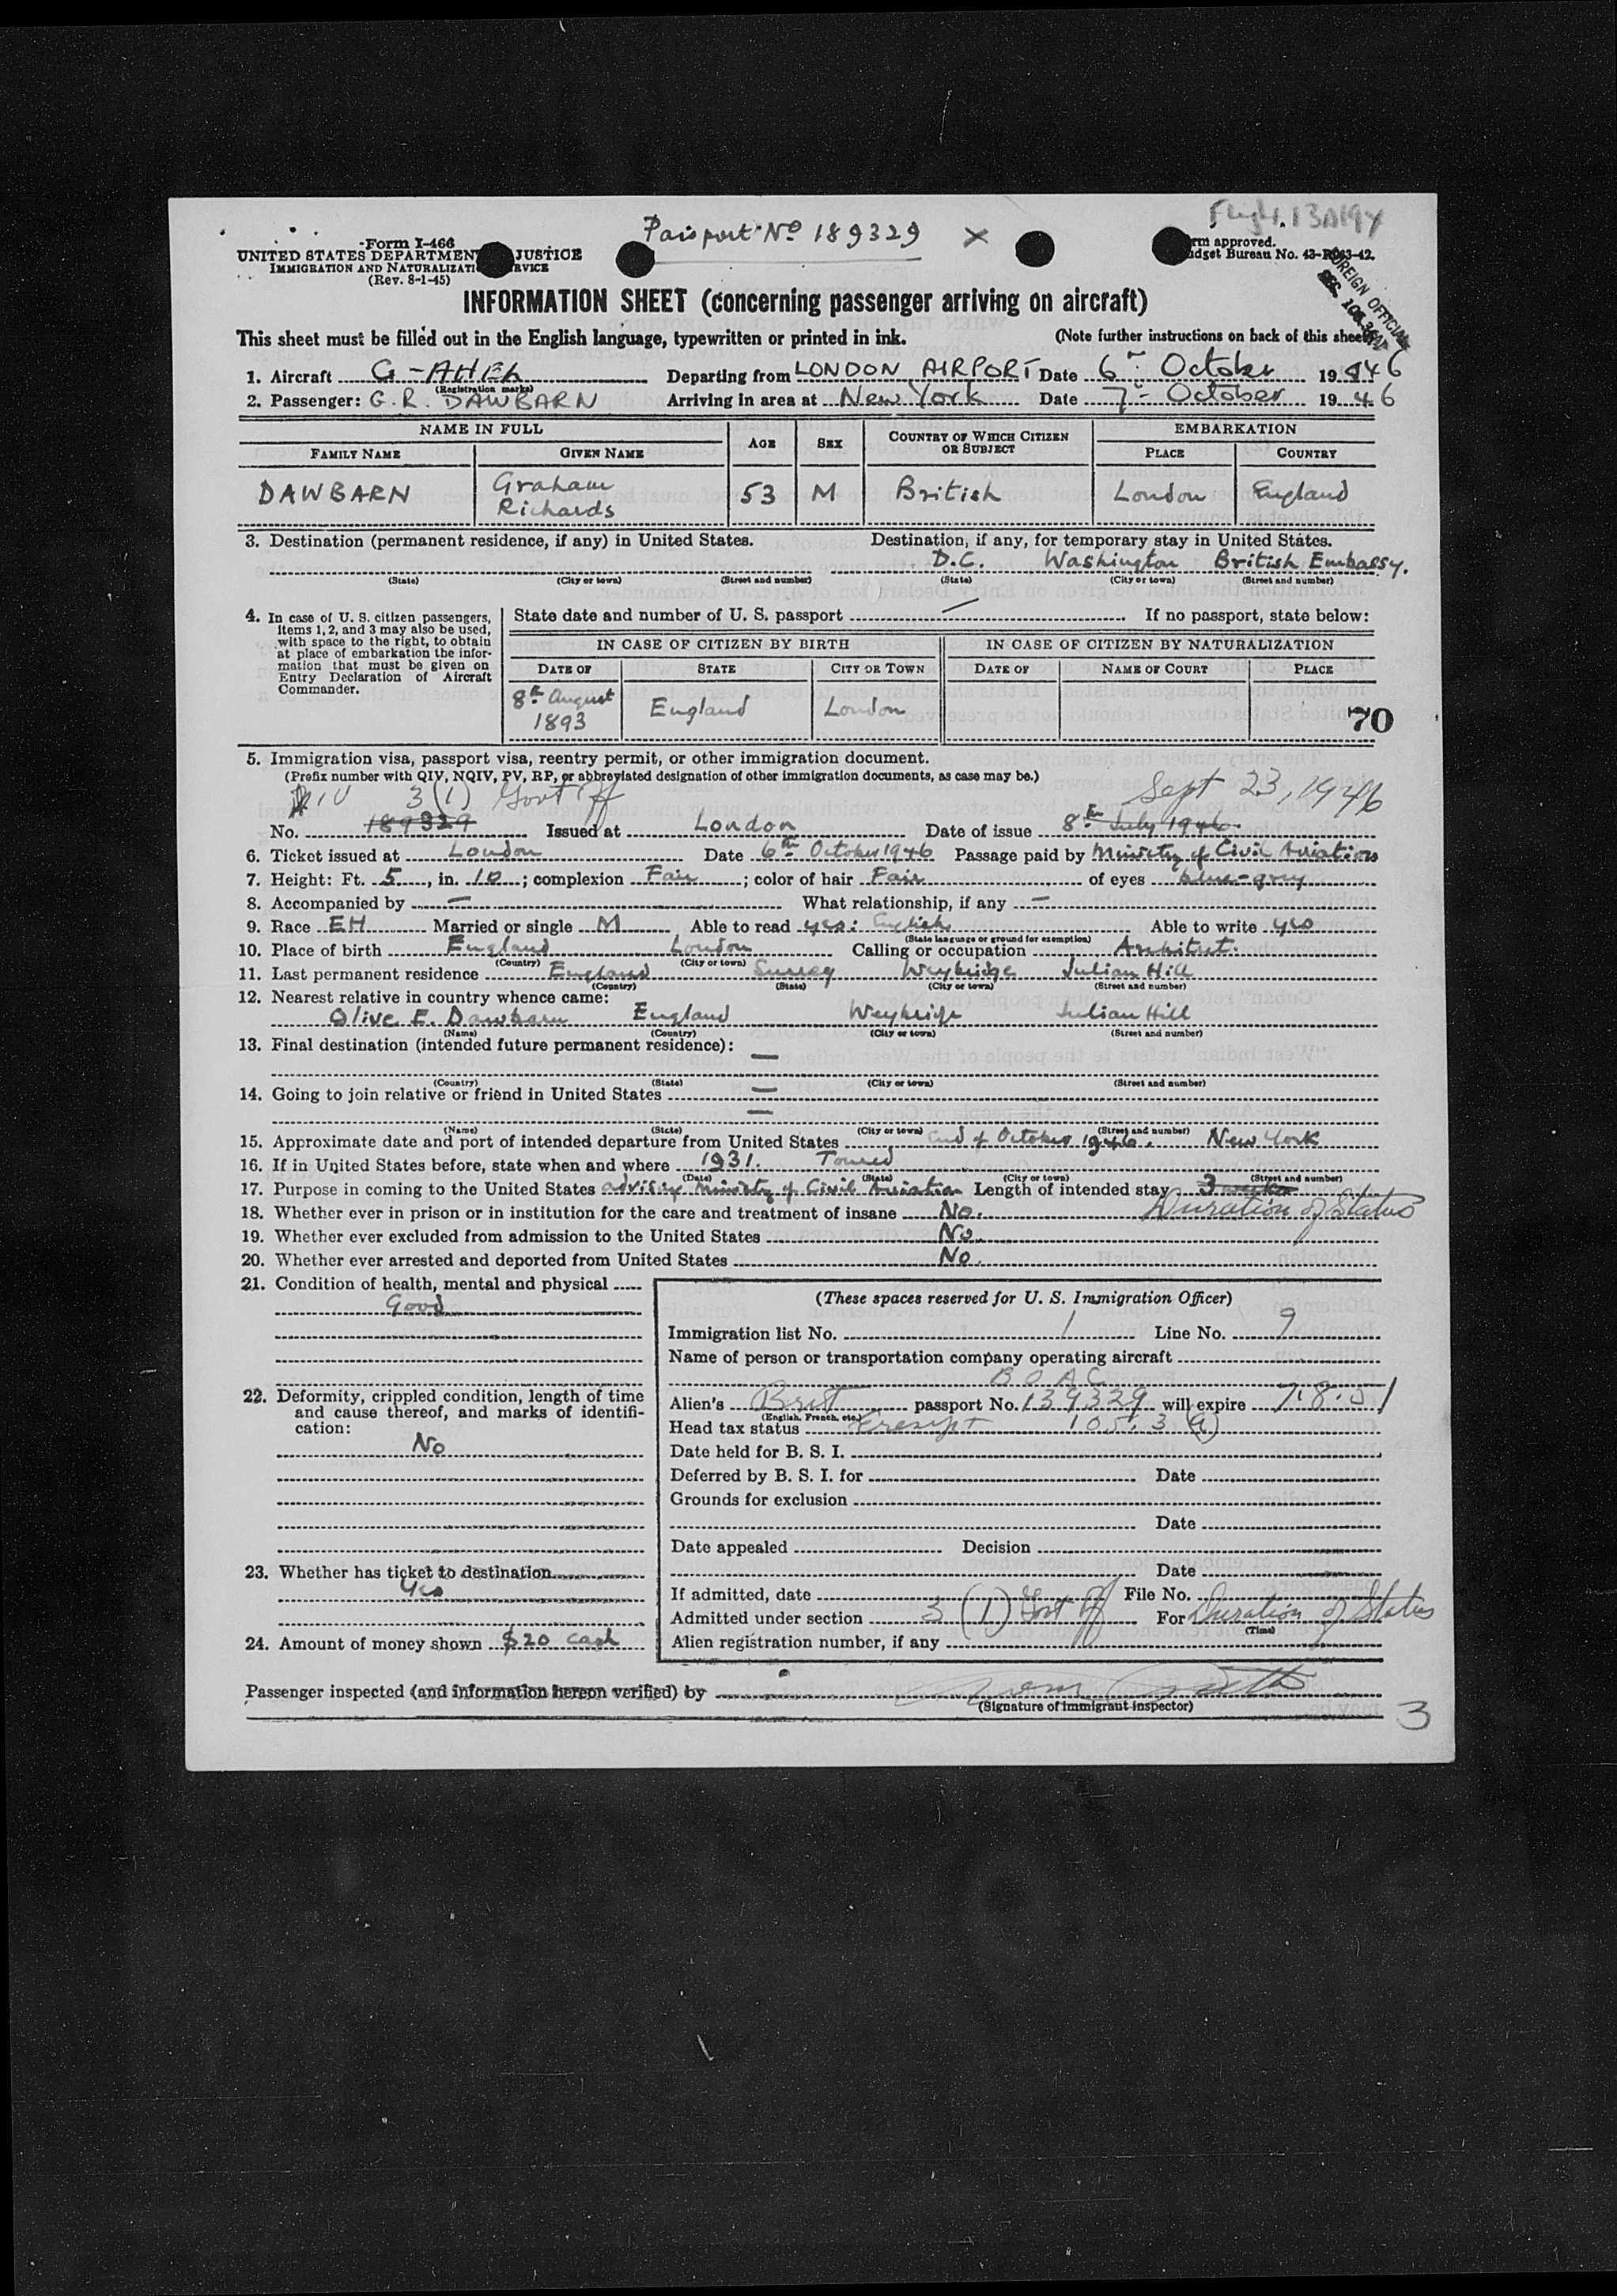 Passport No 189329 X
Form I-466
UNITED STATES DEPARTMENT JUSTICE
IMMIGRATION AND NATURALIZATI RVICE
(Rev. 8-1-45)
rm approved.
udget Bureau No. 43-R063-42.
FOREIGN OFFICIAL
INFORMATION SHEET (concerning passenger arriving on aircraft)
This sheet must be filled out in the English language, typewritten or printed in ink. (Note further instructions on back of this sheet)
1. Aircraft G-AHEK Departing from LONDON AIRPORT Date 6th October 1946
(Registration marks)
2. Passenger: G.R. DAWBARN Arriving in area at New York Date 7th October 1946
NAME IN FULL AGE SEX COUNTRY OF WHICH CITIZEN OR SUBJECT EMBARKATION
FAMILY NAME GIVEN NAME PLACE COUNTRY
DAWBARN Graham Richards 53 M British London England
3. Destination (permanent residence, if any) in United States. Destination, if any, for temporary stay in United States.
D.C. Washington British Embassy.
(State) (City or town) (Street and number) (State) (City or town) (Street and number)
4. In case of U. S. citizen passengers, items 1, 2, and 3 may also be used, with space to the right, to obtain at place of embarkation the information that must be given on Entry Declaration of Aircraft Commander.
State date and number of U. S. passport — If no passport, state below:
IN CASE OF CITIZEN BY BIRTH IN CASE OF CITIZEN BY NATURALIZATION
DATE OF STATE CITY OR TOWN DATE OF NAME OF COURT PLACE
8th August 1893 England London
70
5. Immigration visa, passport visa, reentry permit, or other immigration document.
(Prefix number with QIV, NQIV, PV, RP, or abbreviated designation of other immigration documents, as case may be.)
3(1) Govt Off Sept 23, 1946
No. 189329 Issued at London Date of issue 8th July 1946.
6. Ticket issued at London Date 6th October 1946 Passage paid by Ministry of Civil Aviation
7. Height: Ft. 5, in. 10; complexion Fair; color of hair Fair of eyes blue-grey
8. Accompanied by — What relationship, if any —
9. Race EH Married or single M Able to read yes: English Able to write yes
(State language or ground for exemption)
10. Place of birth England London Calling or occupation Architect.
(Country) (City or town)
11. Last permanent residence England Surrey Weybridge Julian Hill
(Country) (State) (City or town) (Street and number)
12. Nearest relative in country whence came:
Olive E. Dawbarn England Weybridge Julian Hill
(Name) (Country) (City or town) (Street and number)
13. Final destination (intended future permanent residence): —
(Country) (State) (City or town) (Street and number)
14. Going to join relative or friend in United States —
—
(Name) (State) (City or town) (Street and number)
15. Approximate date and port of intended departure from United States End of October 1946. New York
16. If in United States before, state when and where 1931. Toured
(Date) (State) (City or town) (Street and number)
17. Purpose in coming to the United States advising Ministry of Civil Aviation Length of intended stay 3 weeks
Duration of Status
18. Whether ever in prison or in institution for the care and treatment of insane No.
19. Whether ever excluded from admission to the United States No.
20. Whether ever arrested and deported from United States No.
21. Condition of health, mental and physical
Good
22. Deformity, crippled condition, length of time and cause thereof, and marks of identification:
No
23. Whether has ticket to destination
Yes
24. Amount of money shown $20 cash
(These spaces reserved for U. S. Immigration Officer)
Immigration list No. 1 Line No. 9
Name of person or transportation company operating aircraft
BOAC
Alien's Brit passport No. 139329 will expire 7.8.51
(English, French, etc.)
Head tax status Exempt 105.3 (a)
Date held for B. S. I.
Deferred by B. S. I. for Date
Grounds for exclusion
Date
Date appealed Decision
Date
If admitted, date File No.
Admitted under section 3 (1) Govt Off For Duration of Status
(Time)
Alien registration number, if any
Passenger inspected (and information hereon verified) by
(Signature of immigrant inspector)
3